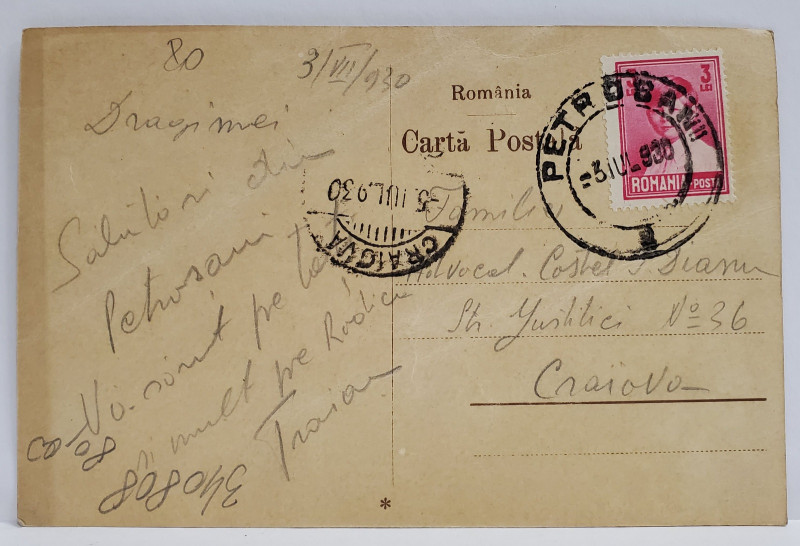 80
3/VII/930
Dragii mei
Salutări din
Petroșani
Vă sărut pe toți
și mult pe Rodica
Traian
80
340808
România
Carta Postala
3
LEI
ROMANIA POSTA
PETROȘANI
-3.IUL.930
-5.IUL.930
CRAIOVA
Familia
Advocat. Costel S. Dianu
Str. Justitiei No 36
Craiova
*